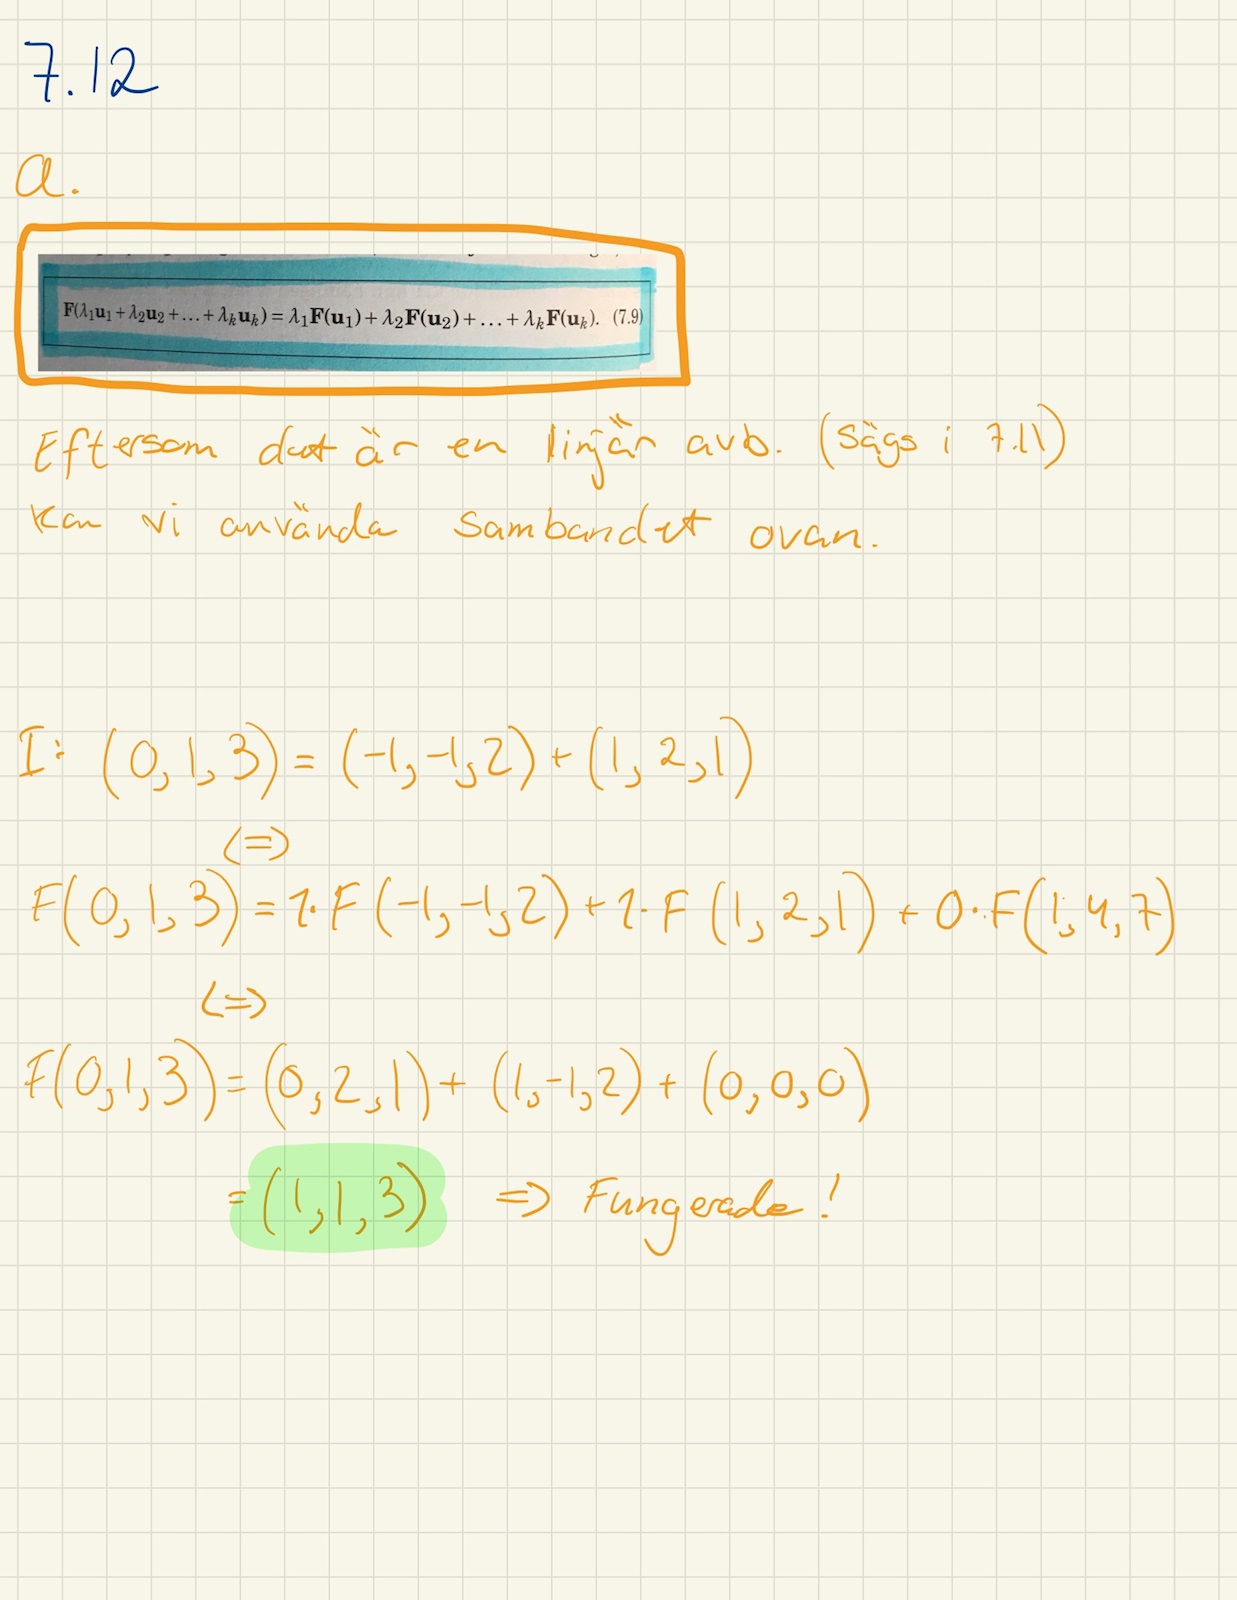 7.12
a.
F(λ₁u₁ + λ₂u₂ + ... + λₖuₖ) = λ₁F(u₁) + λ₂F(u₂) + ... + λₖF(uₖ). (7.9)
Eftersom det är en linjär avb. (sägs i 7.11)
kan vi använda sambandet ovan.
I: (0, 1, 3) = (-1, -1, 2) + (1, 2, 1)
<=>
F(0, 1, 3) = 1·F(-1, -1, 2) + 1·F(1, 2, 1) + 0·F(1, 4, 7)
<=>
F(0, 1, 3) = (0, 2, 1) + (1, -1, 2) + (0, 0, 0)
= (1, 1, 3) => Fungerade!